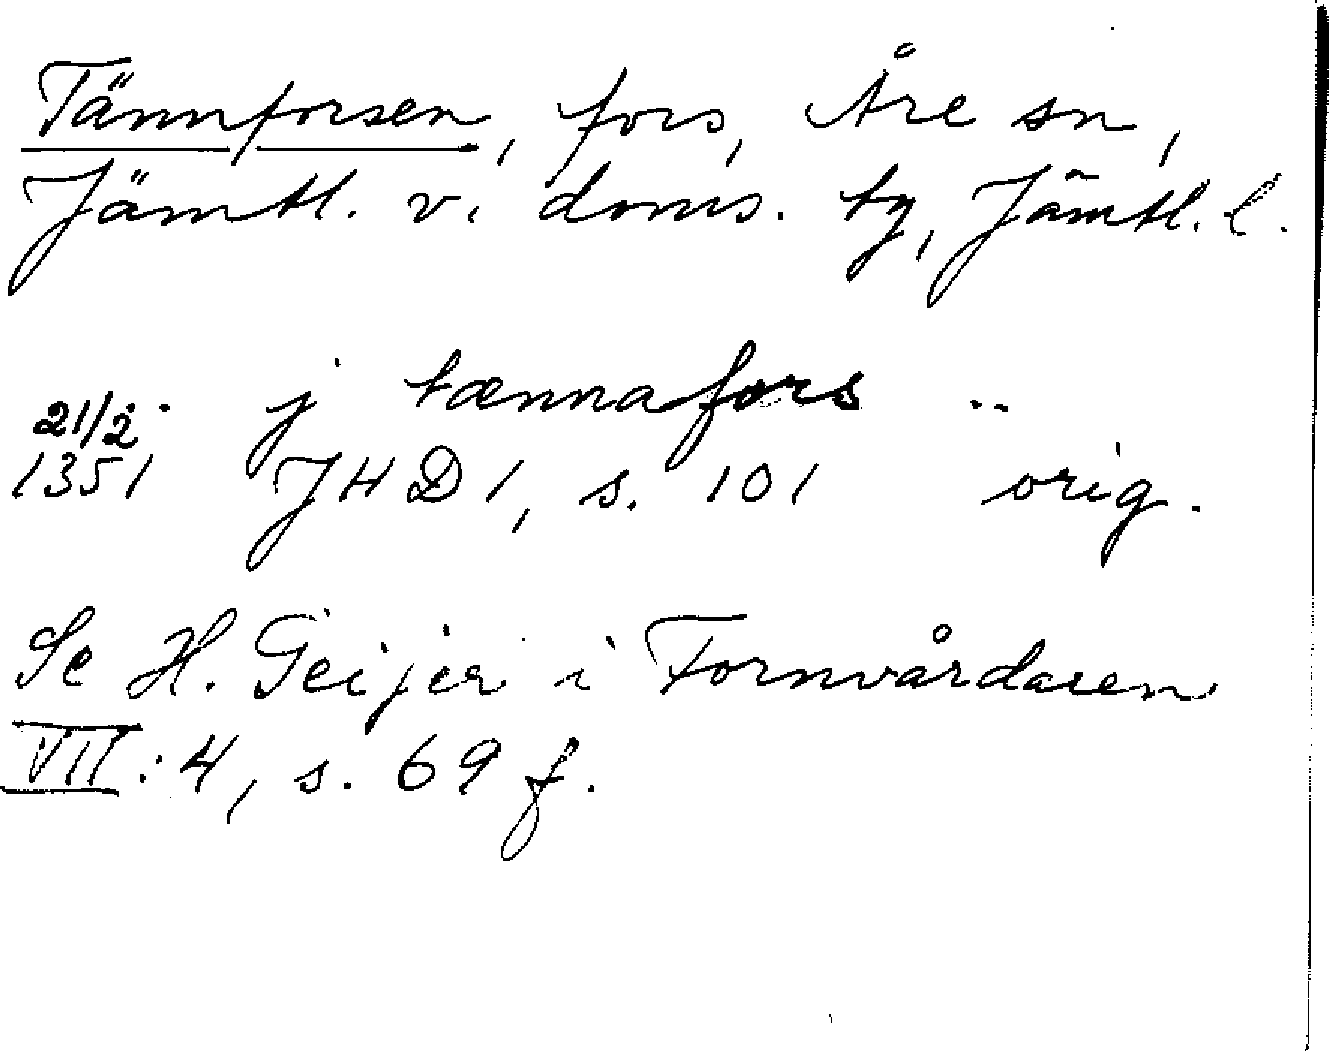 Tännforsen, fors, Åre sn,
Jämtl. v. doms. tg, Jämtl. l.
21/2 j tænnafors ..
1351 JHD 1, s. 101 orig.
Se H. Geijer i Fornvårdaren
VII:4, s. 69 f.